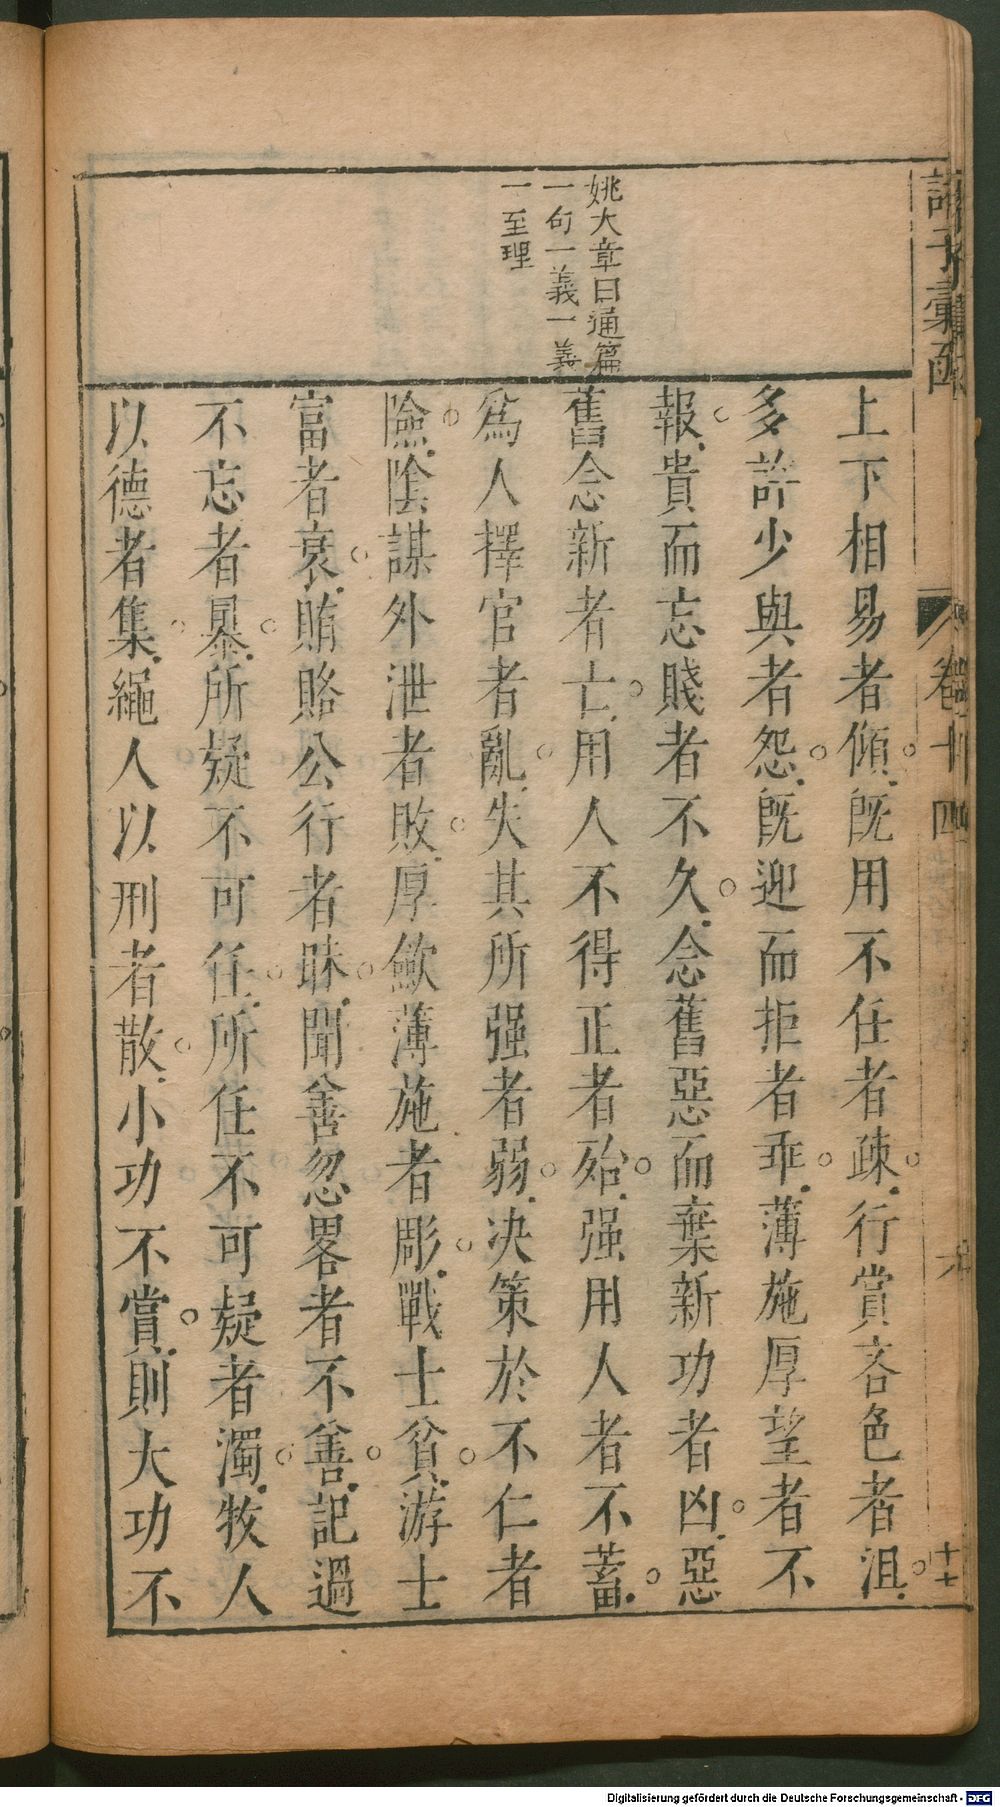 姚大章曰通篇
一句一義一義
一至理
上下相易者傾既用不任者疎行賞吝色者沮
多許少與者怨既迎而拒者乖薄施厚望者不
報貴而忘賤者不久念舊惡而棄新功者凶惡
舊念新者亡用人不得正者殆强用人者不蓄
爲人擇官者亂失其所强者弱决策於不仁者
險陰謀外泄者敗厚歛薄施者彫戰士貧游士
富者衰賄賂公行者昧聞善忽畧者不善記過
不忘者暴所疑不可任所任不可疑者濁牧人
以德者集繩人以刑者散小功不賞則大功不
卷十四
十七
Digitalisierung gefördert durch die Deutsche Forschungsgemeinschaft - DFG